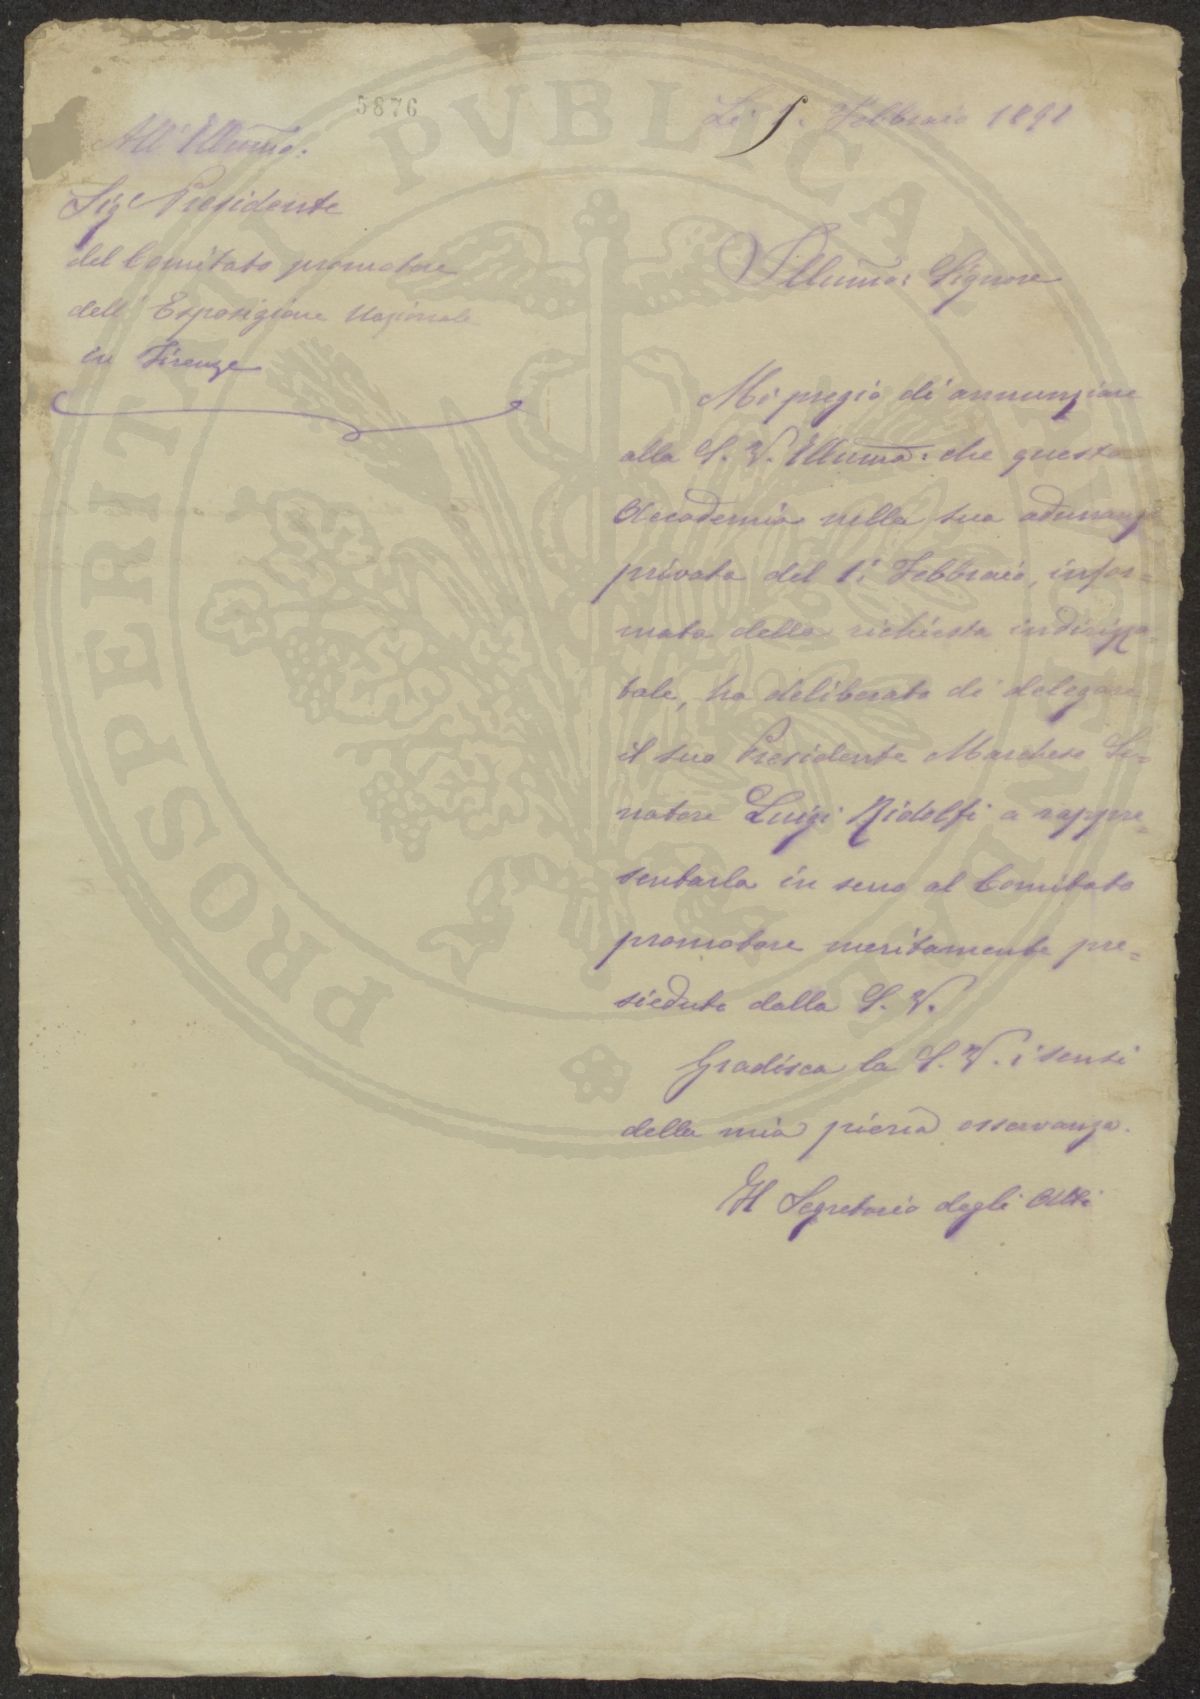 5876
Li 5. Febbraio 1891
All' Illumo.
Sig Presidente
del Comitato promotore
dell' Esposizione Nazionale
in Firenze
Illumo: Signore
Mi pregio di annunziare
alla S. V. Illuma: che questa
Accademia nella sua adunanza
privata del 1.° Febbraio, infor=
mata della richiesta indirizza=
tale, ha deliberato di delegare
il suo Presidente Marchese Se=
natore Luigi Ridolfi a rappre=
sentarla in seno al Comitato
promotore meritamente pre=
sieduto dalla S. V.
Gradisca la S. V. i sensi
della mia piena osservanza.
Il Segretario degli Atti
PROSPERITATI PVBLICAE